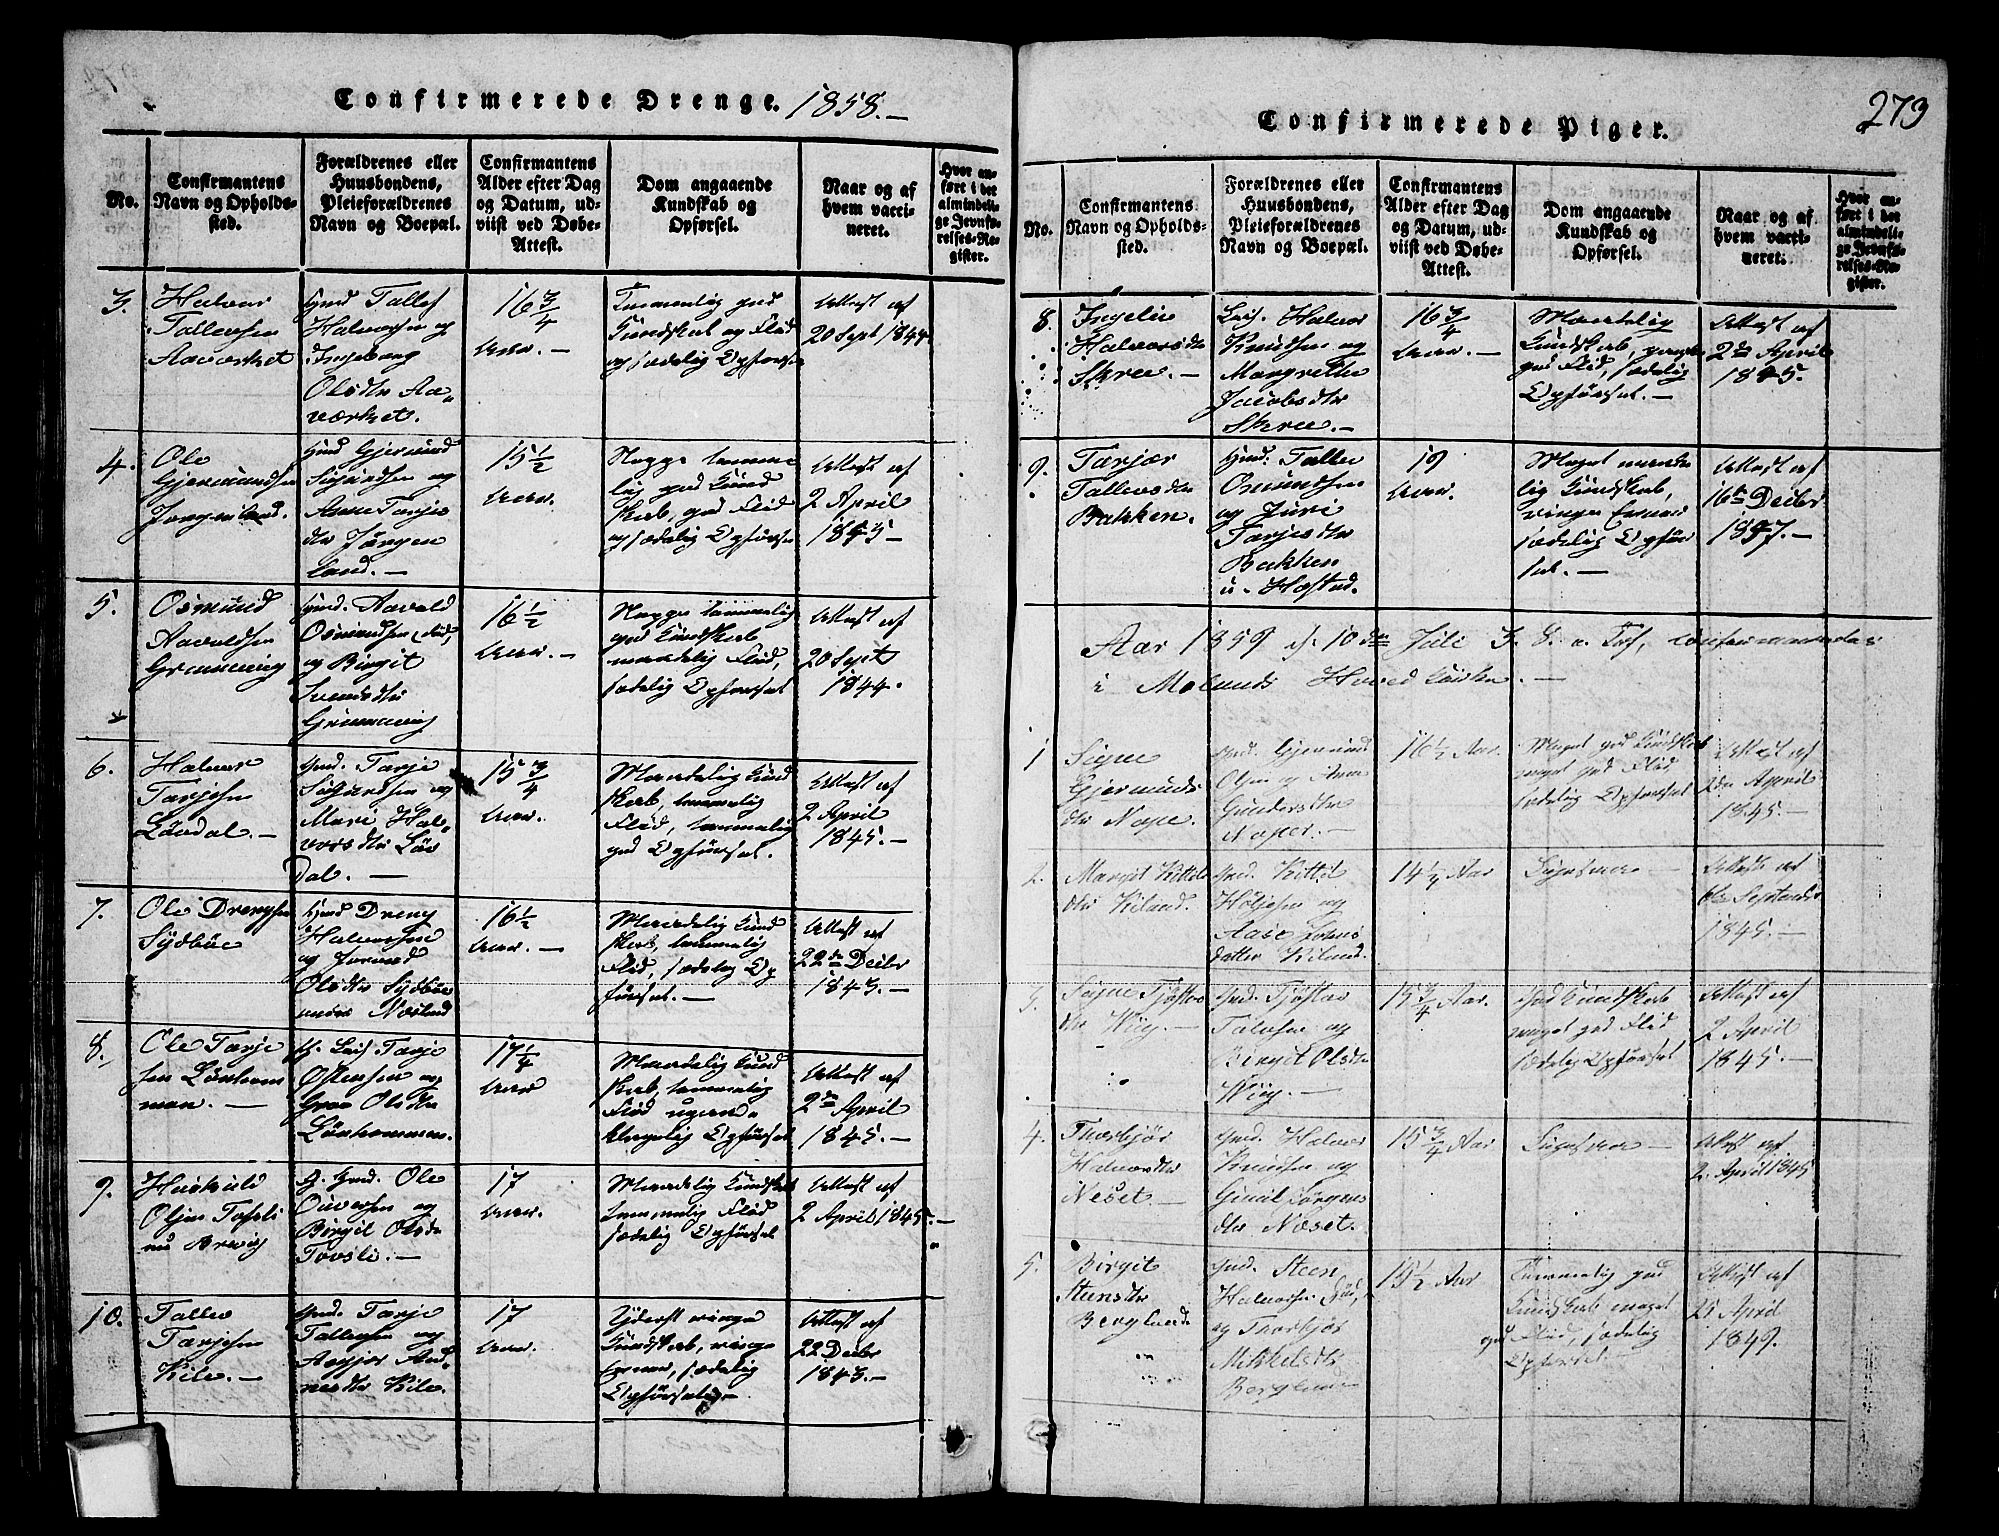 Confirmerede Drenge. 1858.-
No.
Confirmantens
Navn og Opholds-
sted.
Forældrenes eller
Huusbondens,
Pleieforældrenes
Navn og Boepæl.
Confirmantens
Alder efter Dag
og Datum, ud-
viist ved Døbe-
Attest.
Dom angaaende
Kundskab og
Opførsel.
Naar og af
hvem vacci-
neret.
Hvor an-
ført i det
almindeli-
ge Jevnfø-
relses-Re-
gister.
3.
Halvor
Tallevsen
Aaværket
Gmd Tallef
Halvorsen og
Ingeborg
Olsdtr Aa-
værket.
16 3/4
Aar. -
Temmelig god
Kundskab og Flid
og sædelig Opførsel
Attest af
20 Sept 1844
4.
Ole
Gjermundsen
Gmd Gjermund
Sigurdsen og
Anne Tarjes
dtr Jørgen
land. -
15 1/2
Aar.
Noppe temme
lig god Kund
skab, god Flid
og sædelig Opførsel
Attest af
2 April
1845 -
5.
Osmund
Aavoldsen
Grimming
Gmd. Aavold
Osmundsen
og Birgit
Svensdtr
Grimming
16 1/2
Aar. -
Noppe temmelig
god Kundskab
maadelig Flid,
sædelig Opførsel
Attest af
20 Sept
1844.
6.
Halvor
Tarjesen
Lövdal. -
Gmd. Tarje
Sigurdsen og
Mari Hal-
vorsdtr Löv
dal. -
15 3/4
Aar.
Maadelig Kund
skab, temmelig
Flid, temmelig
god Opførsel.
Attest af
2 April
1845. -
7.
Ole Drengsen
Sydböe
Gmd Dreng
Halvorsen
og Jorund
Olsdtr Sydböe
16 1/2
Aar. -
Maadelig Kund
skab, temmelig
Flid, sædelig Op
førsel. -
Attest af
22de Decbr
1843. -
8.
Ole Tarje
sen Lönhom
men. -
Tarje
Östensen og
Groe Olsdtr
Lönhommen.
17 1/4
Aar
Maadelig Kund
skab, temmelig
Flid
Opførsel
Attest af
2den April
1845. -
9.
Olsen Tovsli
Gmd. Ole
og
Birgit Olsdtr
Tovsli. -
17
Aar.
Maadelig Kundskab
temmelig Flid
sædelig Opførsel
Attest af
2 April 1845. -
10.
Tallev
Tarjesen
Kile. -
Gmd. Tarje
Tallevsen og
Aasjor And-
resdtr Kile.
17
Aar.
Yderst ringe
Kundskab, ringe
Evner, sædelig
Opførsel -
Attest af
22 Decbr
1843. -
273
Confirmerede Piger.
No.
Confirmantens
Navn og Opholds-
sted.
Forældrenes eller
Huusbondens,
Pleieforældrenes
Navn og Boepæl.
Confirmantens
Alder efter Dag
og Datum, ud-
viist ved Døbe-
Attest.
Dom angaaende
Kundskab og
Opførsel.
Naar og af
hvem vacci-
neret.
Hvor an-
ført i det
almindeli-
ge Jevnfø-
relses-Re-
gister.
8.
Ingelev
Halvorsdtr
Skree. -
Leif. Halvor
Knudsen og
Margrethe
Jacobsdtr
Skree. -
16 3/4
Aar. -
Maadelig
Kundskab,
god Flid, sædelig
Opførsel. -
Attest af
2den April
1845.
9.
Tarjær
Tallevsdtr
Bakken.
Gmd. Tallev
Osmundsen
og Juri
Tarjesdtr
Bakken
u. Hastad.
19
Aar.
Meget maade
lig Kundskab,
ringe Evner
sædelig Opfør
sel. -
Attest af
16de Decbr
1857. -
Aar 1859 d. 10de Juli 3. S. e. Tref, confirmeredes
i Molands Hovedkirke. -
1
Signe
Gjermunds
dtr Nape.
Gmd. Gjermund
Olsen og Anne
Gundersdtr
Naper. -
16 1/2 Aar.
Meget god Kundskab
meget god Flid
sædelig Opførsel
Attest af
2den April
1845. -
2.
Margit Kittels
dtr Kiland.
Gmd. Kittil
Höljesen og
Aase
datter Kiland.
14 1/4 Aar
Ligesaa -
Attest af
6te September
1845. -
3.
Signe Tjöstov
dtr Wiig. -
Gmd. Tjöstov
Talevsen og
Birgit Olsdtr
Wiig. -
15 3/4 Aar.
God Kundskab
meget god Flid
sædelig Opførsel
Attest af
2 April
1845. -
4.
Thorbjör
Halvorsdtr
Neset -
Gmd. Halvor
Knudsen og
Gunil Jörgens
dtr Næset.
15 3/4 Aar
Ligesaa -
Attest af
2. April 1845
5.
Birgit
Steensdtr
Berglands
Gmd. Steen
Halvorsen
og Thorbjör
Mikkelsdtr
Bergland
15 1/2 Aar
Temmelig god
Kundskab meget
god Flid, sædelig
Opførsel -
Attest af
April
1849.